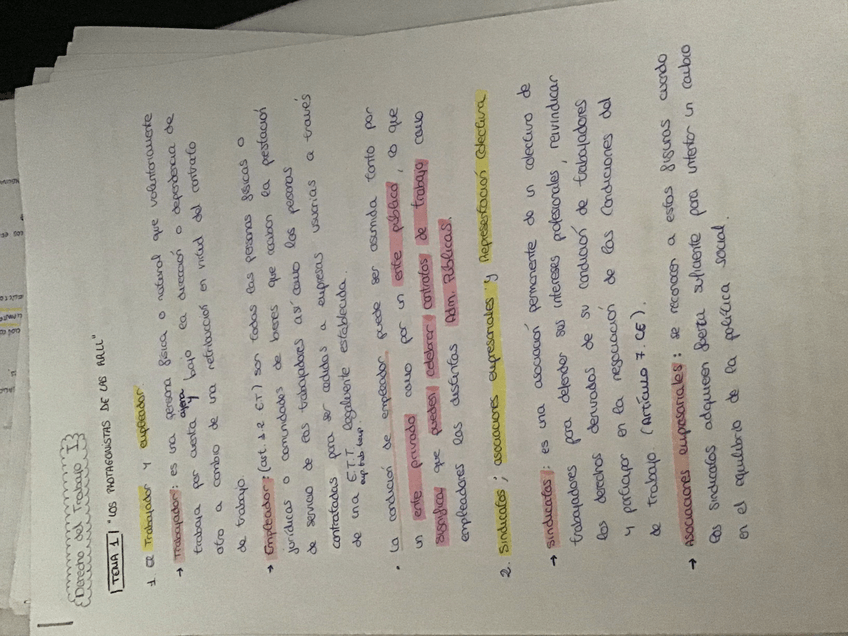 Derecho del Trabajo I
TEMA 1 "LOS PROTAGONISTAS DE LAS ARLL"
1. El Trabajador y empleador
→ Trabajador: es una persona física o natural que voluntariamente
trabaja por cuenta ajena y bajo la dirección o dependencia de
otro a cambio de una retribución en virtud del contrato
de trabajo.
→ Empleador: (art. 1.2 ET) son todas las personas físicas o
jurídicas o comunidades de bienes que reciban la prestación
de servicio de los trabajadores así como las personas
contratadas para ser cedidas a empresas usuarias a través
de una E.T.T legalmente establecida.
emp. trab. temp.
· La condición de empleador puede ser asumida tanto por
un ente privado como por un ente público, lo que
significa que pueden celebrar contratos de trabajo como
empleadores las distintas Adm. Públicas.
2. Sindicatos, asociaciones empresariales y Representación Colectiva
→ Sindicatos: es una asociación permanente de un colectivo de
trabajadores para defender sus intereses profesionales, reivindicar
los derechos derivados de su condición de trabajadores
y participar en la negociación de las condiciones del
de trabajo (Artículo 7. CE).
→ Asociaciones empresariales: se reconocen a estas figuras cuando
los sindicatos adquieren fuerza suficiente para intentar un cambio
en el equilibrio de la política social.